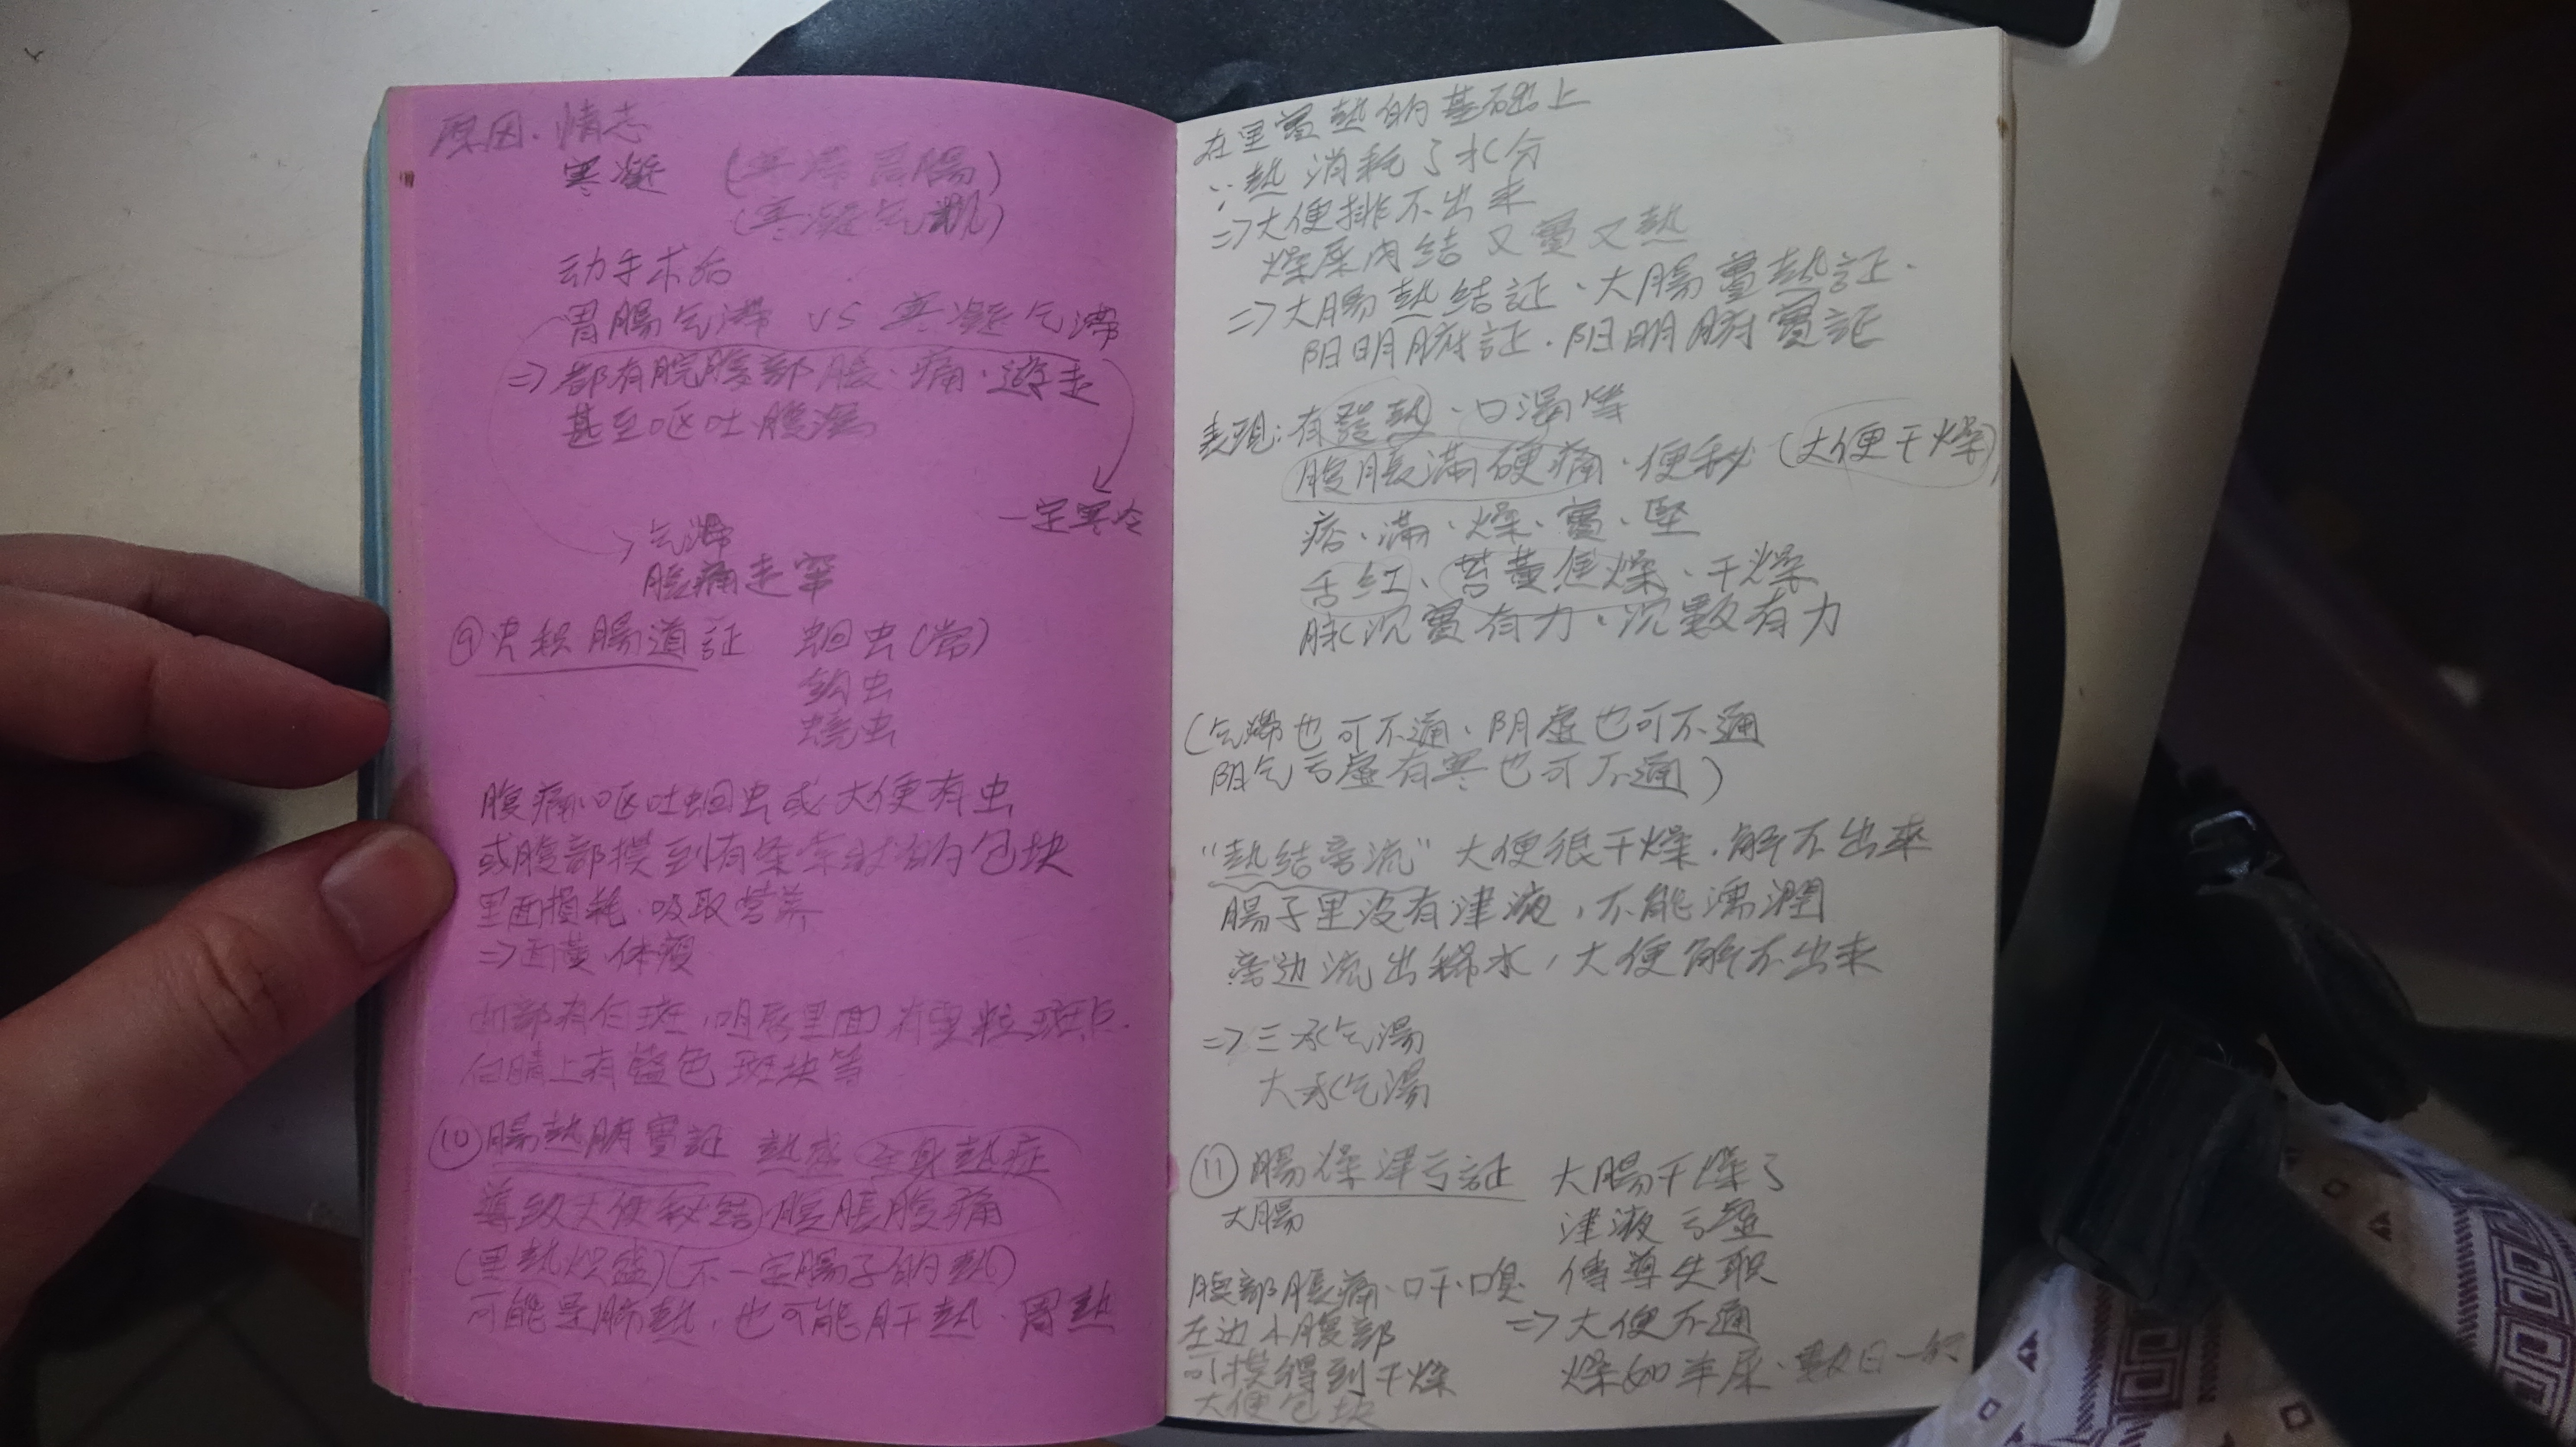 原因.情志
寒凝 (寒滯胃腸)
(寒凝气机)
动手术后
胃腸气滯 VS 寒凝气滯
=> 都有脘腹部脹、痛、遊走
甚至呕吐腹瀉
一定寒冷
气滯
脹痛走窜
⑨虫积腸道証 蛔虫(常)
鈎虫
蟯虫
腹痛.呕吐蛔虫或大便有虫
或腹部摸到有条索状的包块
里面損耗.吸取营养
=>面黃.体瘦
面部有白斑,咀唇里面有粟粒斑点.
白睛上有藍色斑块等
⑩腸熱腑實証 熱盛 全身熱症
導致大便秘結 腹脹腹痛
(里熱炽盛)(不一定腸子的熱)
可能是肺熱,也可能肝熱、胃熱
在里實熱的基础上
∵熱消耗了水分
=>大便排不出来
燥屎内结 又實又熱
=>大腸熱结証、大腸實熱証.
阳明腑証.阳明腑實証
表現:有發熱、口渴等
腹脹滿硬痛、便秘(大便干燥)
痞、滿、燥、實、堅
舌红、苔黃焦燥、干燥
脉沉實有力、沉數有力
(气滯也可不通、阴虚也可不通
阳气亏虚有寒也可不通)
"熱结旁流" 大便很干燥.解不出來
腸子里没有津液,不能濡潤
旁边流出稀水,大便解不出来
=>三承气湯
大承气湯
⑪腸燥津亏証 大腸干燥了
大腸 津液亏虚
腹部脹痛、口干、口臭 傳導失职
左边小腹部 =>大便不通
可摸得到干燥 燥如羊屎、數日一次
大便包块